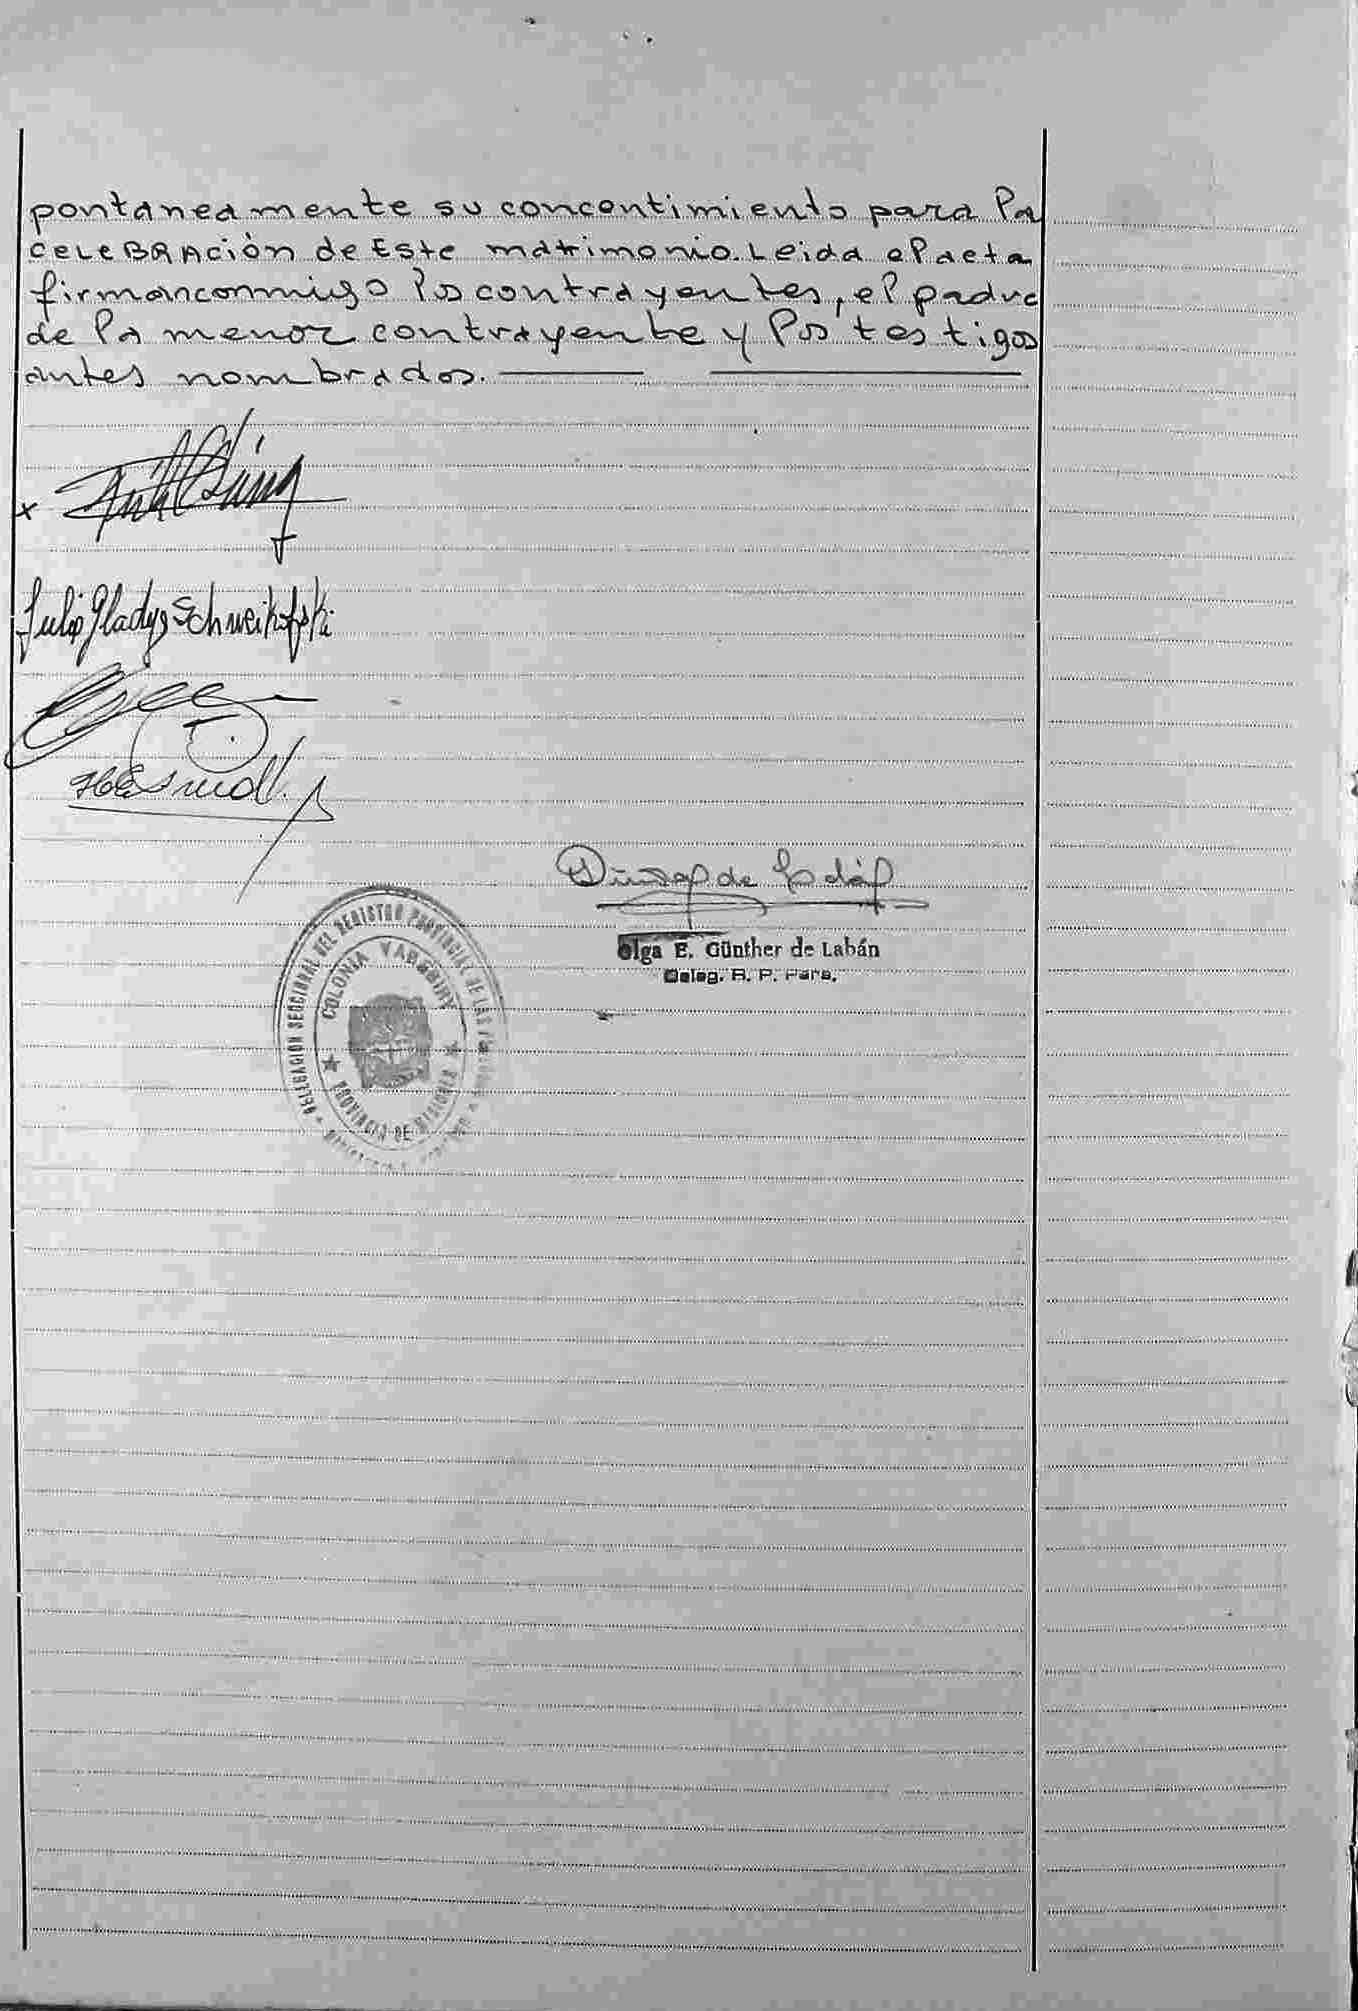 pontaneamente su concentimiento para la
CELEBRACIÓN de Este matrimonio. Leida el acta
firman conmigo los contrayentes, el padre
de la menor contrayente y los testigos
antes nombrados.
x
Julia Gladys Schweikofski
Olga E. Günther de Labán
Deleg. R. P. Pers.
DELEGACIÓN SECCIONAL DEL REGISTRO PROVINCIAL DE LAS PERSONAS
COLONIA
PROVINCIA DE MISIONES